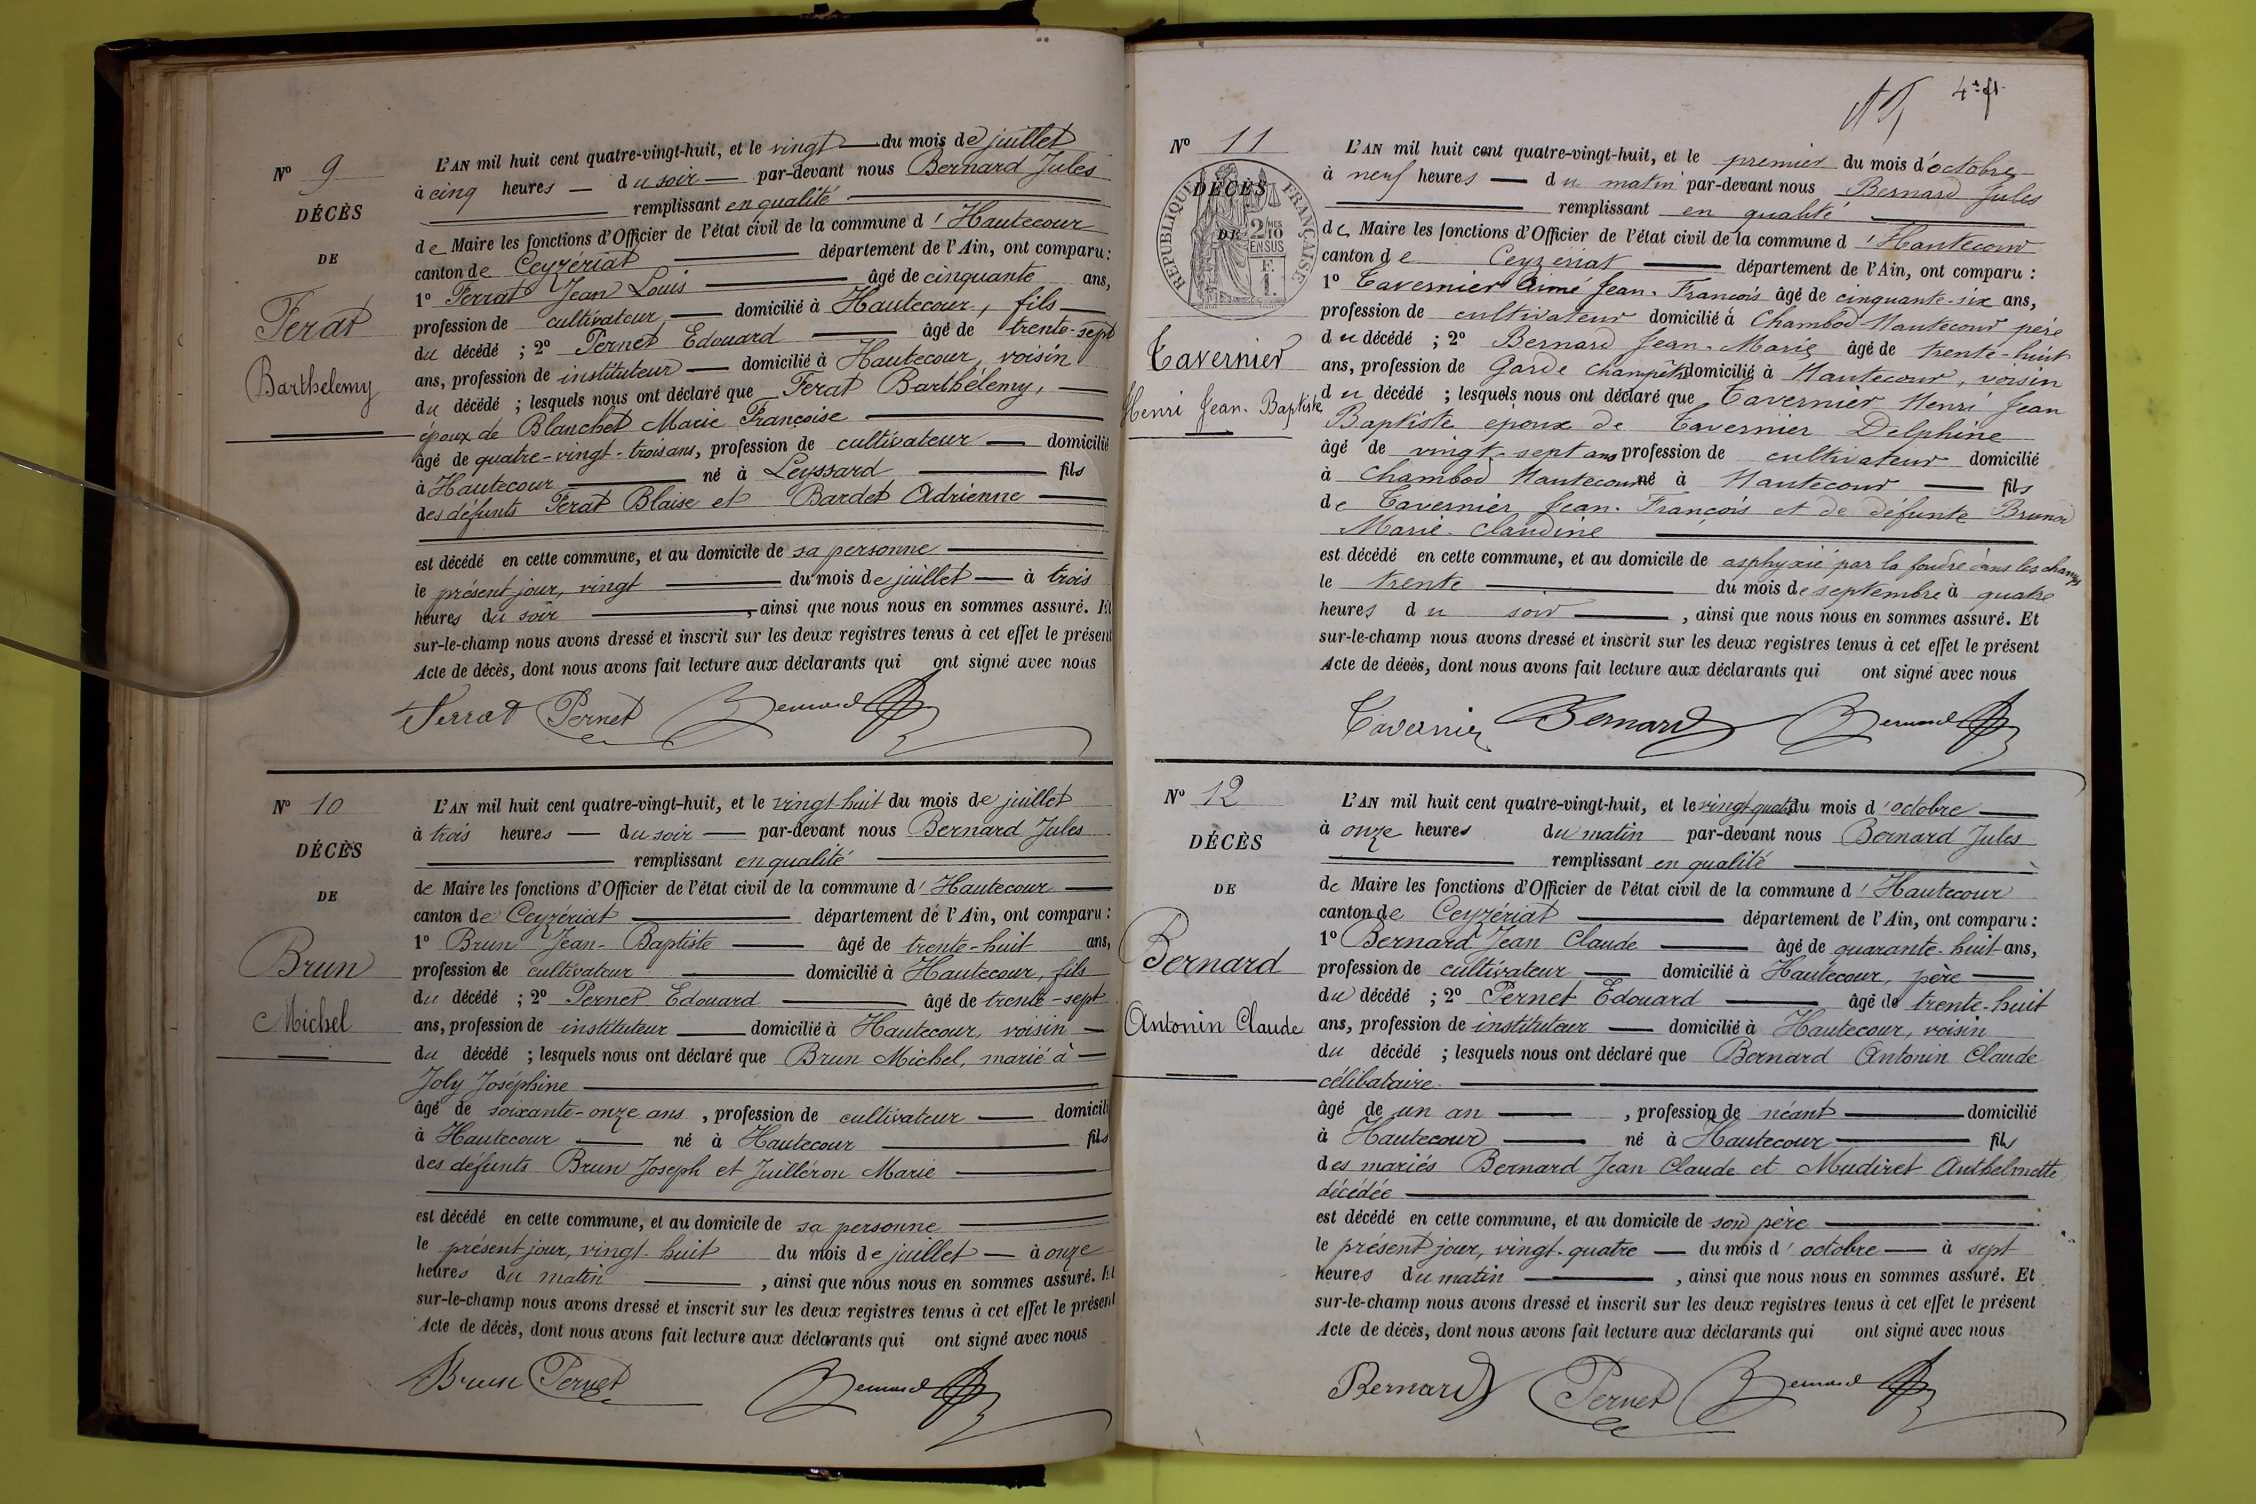 N° 9
DÉCÈS
DE
Ferat
Barthelemy
L'AN mil huit cent quatre-vingt-huit, et le vingt du mois de juillet
à cinq heures du soir par-devant nous Bernard Jules
remplissant en qualité
de Maire les fonctions d'Officier de l'état civil de la commune d'Hautecour
canton de Ceyzériat département de l'Ain, ont comparu :
1° Ferrat Jean Louis âgé de cinquante ans,
profession de cultivateur, domicilié à Hautecour, fils
du décédé ; 2° Pernet Edouard âgé de trente-sept
ans, profession de instituteur domicilié à Hautecour, voisin
du décédé ; lesquels nous ont déclaré que Ferat Barthélemy,
époux de Blanchet Marie Françoise
âgé de quatre-vingt-trois ans, profession de cultivateur domicilié
à Hautecour né à Leyssard fils
des défunts Ferat Blaise et Bardet Adrienne
est décédé en cette commune, et au domicile de sa personne
le présent jour, vingt du mois de juillet à trois
heures du soir, ainsi que nous nous en sommes assuré. Et
sur-le-champ nous avons dressé et inscrit sur les deux registres tenus à cet effet le présent
Acte de décès, dont nous avons fait lecture aux déclarants qui ont signé avec nous
Ferrat Pernet Bernard
N° 10
DÉCÈS
DE
Brun
Michel
L'AN mil huit cent quatre-vingt-huit, et le vingt-huit du mois de juillet
à trois heures du soir par-devant nous Bernard Jules
remplissant en qualité
de Maire les fonctions d'Officier de l'état civil de la commune d'Hautecour
canton de Ceyzériat département de l'Ain, ont comparu :
1° Brun Jean-Baptiste âgé de trente-huit ans,
profession de cultivateur domicilié à Hautecour, fils
du décédé ; 2° Pernet Edouard âgé de trente-sept
ans, profession de instituteur domicilié à Hautecour, voisin
du décédé ; lesquels nous ont déclaré que Brun Michel, marié à
Joly Joséphine
âgé de soixante-onze ans, profession de cultivateur domicilié
à Hautecour né à Hautecour fils
des défunts Brun Joseph et Juilléron Marie
est décédé en cette commune, et au domicile de sa personne
le présent jour, vingt-huit du mois de juillet à onze
heures du matin, ainsi que nous nous en sommes assuré. Et
sur-le-champ nous avons dressé et inscrit sur les deux registres tenus à cet effet le présent
Acte de décès, dont nous avons fait lecture aux déclarants qui ont signé avec nous
Brun Pernet Bernard
4e ft
N° 11
RÉPUBLIQUE FRANÇAISE
2/10 MES
EN SUS
F.
1.
DÉCÈS
DE
Tavernier
Henri Jean-Baptiste
L'AN mil huit cent quatre-vingt-huit, et le premier du mois d'octobre
à neuf heures du matin par-devant nous Bernard Jules
remplissant en qualité
de Maire les fonctions d'Officier de l'état civil de la commune d'Hautecour
canton de Ceyzériat département de l'Ain, ont comparu :
1° Tavernier Aimé Jean-François âgé de cinquante-six ans,
profession de cultivateur domicilié à Chambod-Hautecour père
du décédé ; 2° Bernard Jean-Marie âgé de trente-huit
ans, profession de Garde champêtre domicilié à Hautecour, voisin
du décédé ; lesquels nous ont déclaré que Tavernier Henri Jean
Baptiste époux de Tavernier Delphine
âgé de vingt-sept ans profession de cultivateur domicilié
à Chambod Hautecour né à Hautecour fils
de Tavernier Jean-François et de défunte Brunod
Marie-Claudine
est décédé en cette commune, et au domicile de asphyxié par la foudre dans les champs
le trente du mois de septembre à quatre
heures du soir, ainsi que nous nous en sommes assuré. Et
sur-le-champ nous avons dressé et inscrit sur les deux registres tenus à cet effet le présent
Acte de décès, dont nous avons fait lecture aux déclarants qui ont signé avec nous
Tavernier Bernard Bernard
N° 12
DÉCÈS
DE
Bernard
Antonin Claude
L'AN mil huit cent quatre-vingt-huit, et le vingt-quatre du mois d'octobre
à onze heures du matin par-devant nous Bernard Jules
remplissant en qualité
de Maire les fonctions d'Officier de l'état civil de la commune d'Hautecour
canton de Ceyzériat département de l'Ain, ont comparu :
1° Bernard Jean Claude âgé de quarante-huit ans,
profession de cultivateur domicilié à Hautecour, père
du décédé ; 2° Pernet Edouard âgé de trente-huit
ans, profession de instituteur domicilié à Hautecour, voisin
du décédé ; lesquels nous ont déclaré que Bernard Antonin Claude
célibataire
âgé de un an, profession de néant domicilié
à Hautecour né à Hautecour fils
des mariés Bernard Jean Claude et Mudiret Anthelmette,
décédée
est décédé en cette commune, et au domicile de son père
le présent jour, vingt-quatre du mois d'octobre à sept
heures du matin, ainsi que nous nous en sommes assuré. Et
sur-le-champ nous avons dressé et inscrit sur les deux registres tenus à cet effet le présent
Acte de décès, dont nous avons fait lecture aux déclarants qui ont signé avec nous
Bernard Pernet Bernard